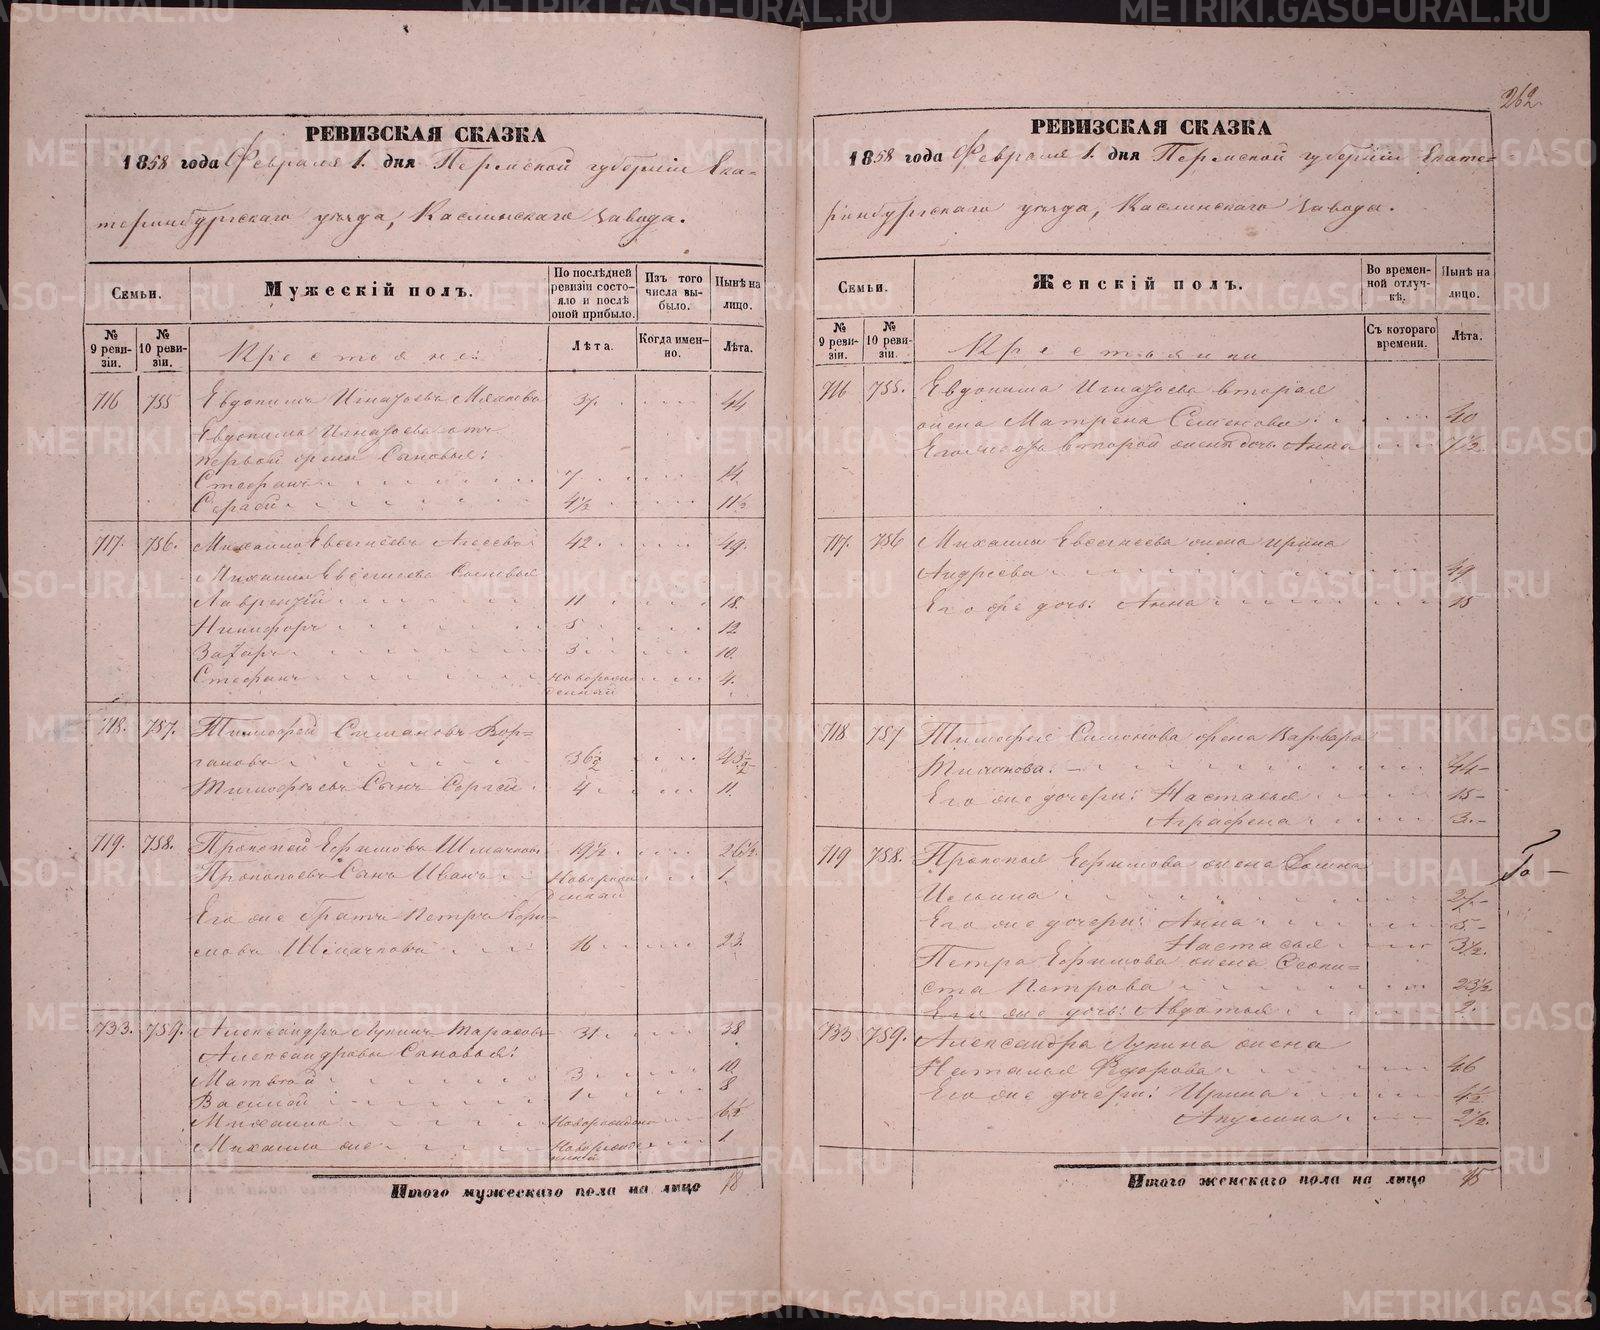 262.
РЕВИЗСКАЯ СКАЗКА
1858 года Февраля 1. дня Пермской губерніи Ека-
теринбургскаго уѣзда, Каслинскаго завода.
Семьи.
Мужескій полъ.
По послѣдней ревизіи состояло и послѣ оной прибыло.
Изъ того числа выбыло.
Нынѣ на лицо.
№ 9 ревизіи.
№ 10 ревизіи.
Крестьяне:
Лѣта.
Когда именно.
Лѣта.
716 755 Евдокимъ Игнатьевъ 37. 44
Евдокима Игнатьева отъ
первой жены Сыновья:
Стефанъ 7 14
Сергей 4½ 11½
717. 756. Михайло Евсегнѣевъ Агеевъ 42. 49.
Михаила Евсегнѣева Сыновья
Лаврентій 11 18.
Никифоръ 5 12
Захаръ 3 10.
Стефанъ Новорожденный 4.
718. 757. Тимофей Симановъ Вор-
гановъ 36½ 43½
Тимофѣевъ Сынъ Сергей 4 11.
719. 758. Прокопей Ефимовъ 19½ 26½
Прокопьевъ Сынъ Иванъ Новорожденный 1
Его же братъ Петръ Ефи-
мовъ 16 23.
733. 759. Александръ Лукинъ Тарасовъ 31. 38
Александровы Сыновья:
Матвей 3 10.
Василей 1 8
Михайло Новорожден 6½
Михайло же Новорожденный 1
Итого мужескаго пола на лицо 18
РЕВИЗСКАЯ СКАЗКА
1858 года Февраля 1. дня Пермской губерніи Екате-
ринбургскаго уѣзда, Каслинскаго завода.
Семьи.
Женскій полъ.
Во временной отлучкѣ.
Нынѣ на лицо.
№ 9 ревизіи.
№ 10 ревизіи.
Крестьянки
Съ котораго времени.
Лѣта.
716 755. Евдокима Игнатьева вторая
жена Матрена Семенова 40
Его же второй жены дочь Анна 7½
717. 756 Михаила Евсегнеева жена Ирина
Андреева 49
Его же дочь: Анна 15
718 757 Тимофея Симонова жена Варвара
44
Его же дочери: Настасья 15
Аграфена 3.
719 758. Прокопья Ефимова жена
Ильина 27
Его же дочери: Анна 5
Настасья 3½.
Петра Ефимова жена Феокти-
ста Петрова 23½
Его же дочь: Авдотья 2.
733 759. Александра Лукина жена
Наталья Федорова 46
Его же дочери: Ирина 4½
Акулина 2½.
Итого женскаго пола на лицо 15
METRIKI.GASO-URAL.RU